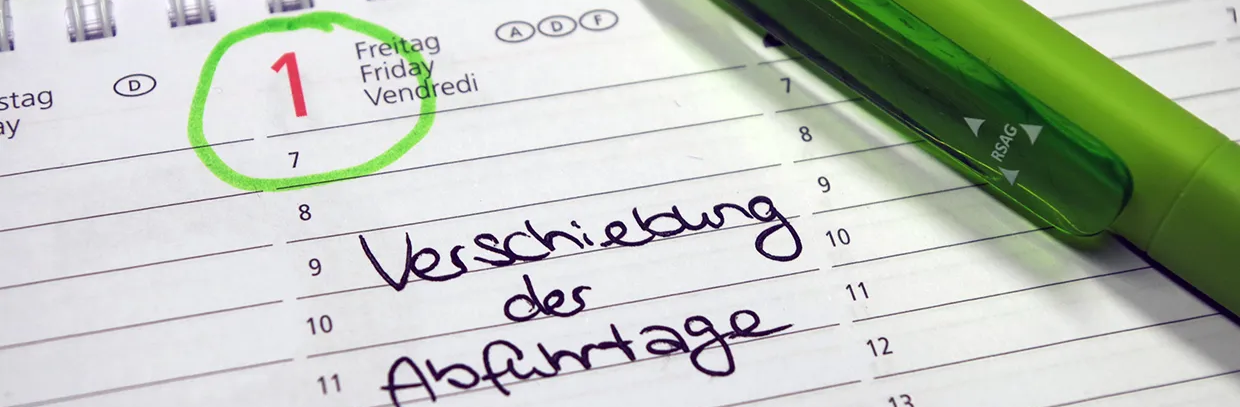 A D F
D
1
Freitag
Friday
Vendredi
stag
ay
7
8
9
10
11
7
8
9
10
11
12
13
7
Verschiebung
der
Abfuhrtage
RSAG